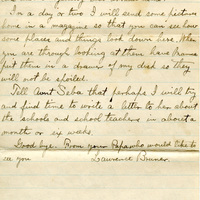 In a day or two I will send some pictures
home in a magazine so that you can see how
some places and things look down here. When
you are through looking at them have Mama
put them in a drawer of my desk so they
will not be spoiled.
Tell Aunt Siba that perhaps I will try
and find time to write a letter to her about
the schools and school teachers in about a
month or six weeks.
Good bye. From your Papa who would like to
see you
Lawrence Bruner.